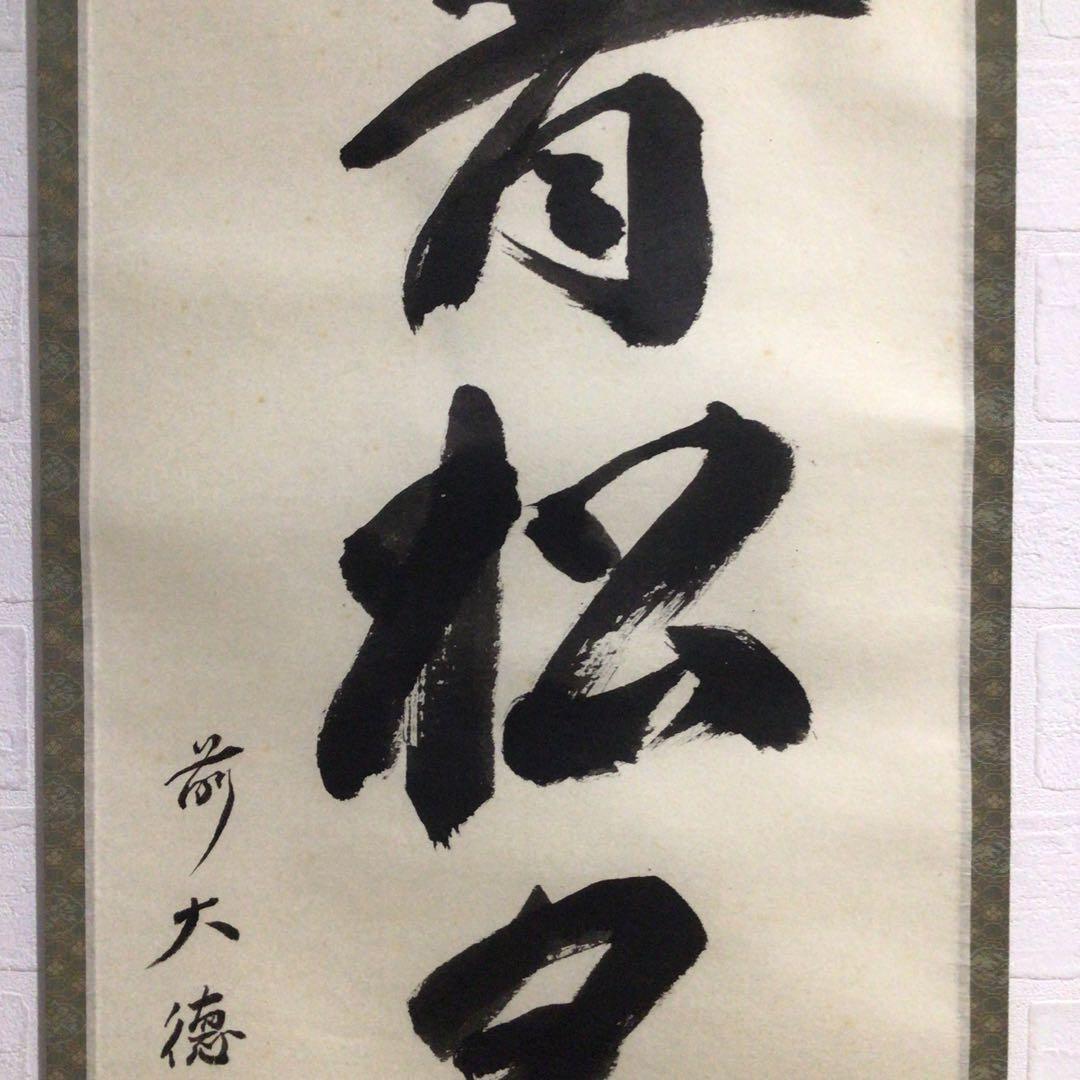 青松
前大徳